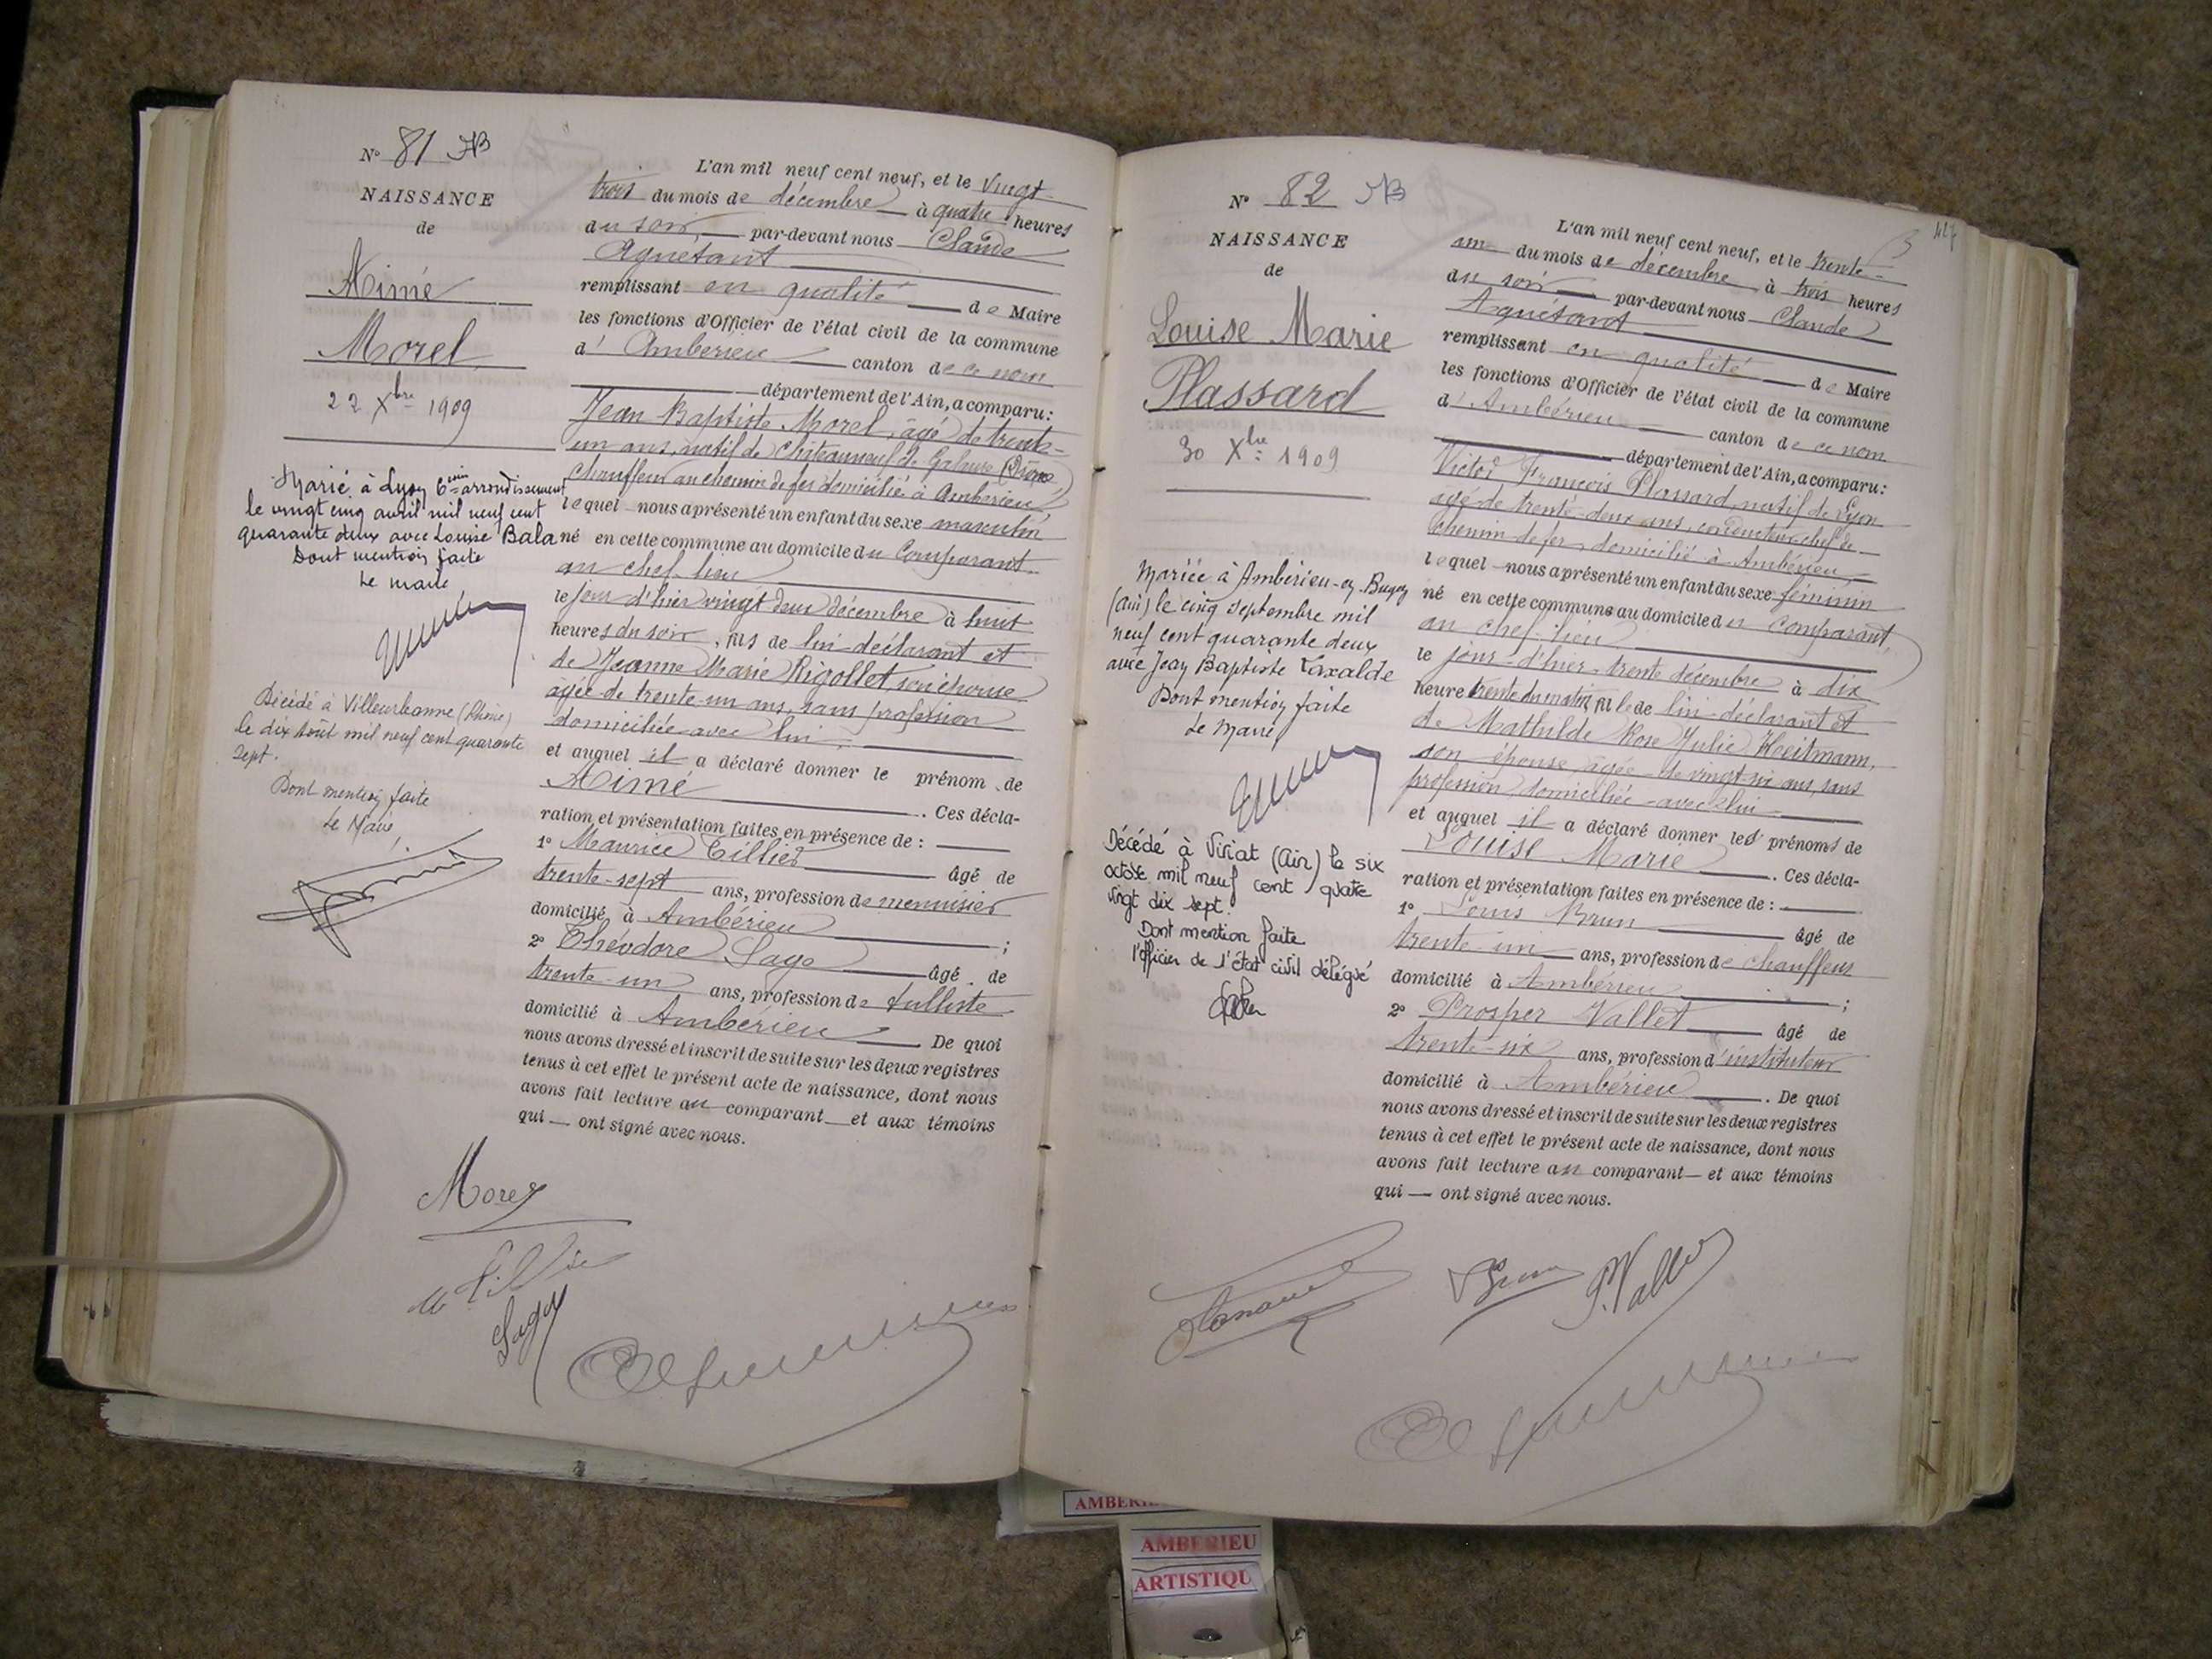 N° 81 AB
NAISSANCE
de
Aimé
Morel
22 Xbre 1909
Marié à Lyon 6ème arrondissement
le vingt cinq avril mil neuf cent
quarante deux avec Louise Bala
Dont mention faite
Le maire
Décédé à Villeurbanne (Rhône)
le dix août mil neuf cent quarante
sept.
Dont mention faite
Le Maire,
L'an mil neuf cent neuf, et le vingt
trois du mois de décembre à quatre heures
du soir, par-devant nous Claude
Aguétant
remplissant en qualité de Maire
les fonctions d'Officier de l'état civil de la commune
d' Ambérieu canton de ce nom
département de l'Ain, a comparu:
Jean Baptiste Morel, âgé de trente-
un ans, natif de Châteauneuf de Galaure (Drôme)
chauffeur au chemin de fer domicilié à Ambérieu,
lequel nous a présenté un enfant du sexe masculin
né en cette commune au domicile du Comparant
au chef-lieu
le jour d'hier vingt deux décembre à huit
heures du soir, fils de lui déclarant et
de Jeanne Marie Rigollet, son épouse
âgée de trente-un ans, sans profession
domiciliée avec lui,
et auquel il a déclaré donner le prénom de
Aimé. Ces décla-
ration et présentation faites en présence de :
1° Maurice Tillier âgé de
trente-sept ans, profession de menuisier
domicilié à Ambérieu ;
2° Théodore Lago âgé de
trente-un ans, profession de tulliste
domicilié à Ambérieu De quoi
nous avons dressé et inscrit de suite sur les deux registres
tenus à cet effet le présent acte de naissance, dont nous
avons fait lecture au comparant et aux témoins
qui — ont signé avec nous.
Morel
N° 82 AB
NAISSANCE
de
Louise Marie
Plassard
30 Xbre 1909
Mariée à Ambérieu-en-Bugey
(Ain) le cinq septembre mil
neuf cent quarante deux
avec Jean Baptiste Taxalde
Dont mention faite
Le Maire
Décédé à Viriat (Ain) le six
octobre mil neuf cent quatre
vingt dix sept.
Dont mention faite
l'officier de l'état civil délégué
L'an mil neuf cent neuf, et le trente-
un du mois de décembre à trois heures
du soir par-devant nous Claude
Aguétant
remplissant en qualité de Maire
les fonctions d'Officier de l'état civil de la commune
d' Ambérieu canton de ce nom
département de l'Ain, a comparu:
Victor François Plassard, natif de Lyon
âgé de trente-deux ans, conducteur chef de
chemin de fer, domicilié à Ambérieu,
lequel nous a présenté un enfant du sexe féminin
né en cette commune au domicile du Comparant,
au chef-lieu
le jour-d'hier-trente décembre à dix
heure trente du matin, fille de lui déclarant et
de Mathilde Rose Julie Heitmann,
son épouse âgée de vingt six ans, sans
profession, domiciliée avec lui
et auquel il a déclaré donner les prénoms de
Louise Marie. Ces décla-
ration et présentation faites en présence de :
1° Louis Brun âgé de
trente-un ans, profession de chauffeur
domicilié à Ambérieu ;
2° Prosper Vallet âgé de
trente-six ans, profession d'instituteur
domicilié à Ambérieu. De quoi
nous avons dressé et inscrit de suite sur les deux registres
tenus à cet effet le présent acte de naissance, dont nous
avons fait lecture au comparant — et aux témoins
qui — ont signé avec nous.
P. Vallet
AMBERIEU
ARTISTIQU